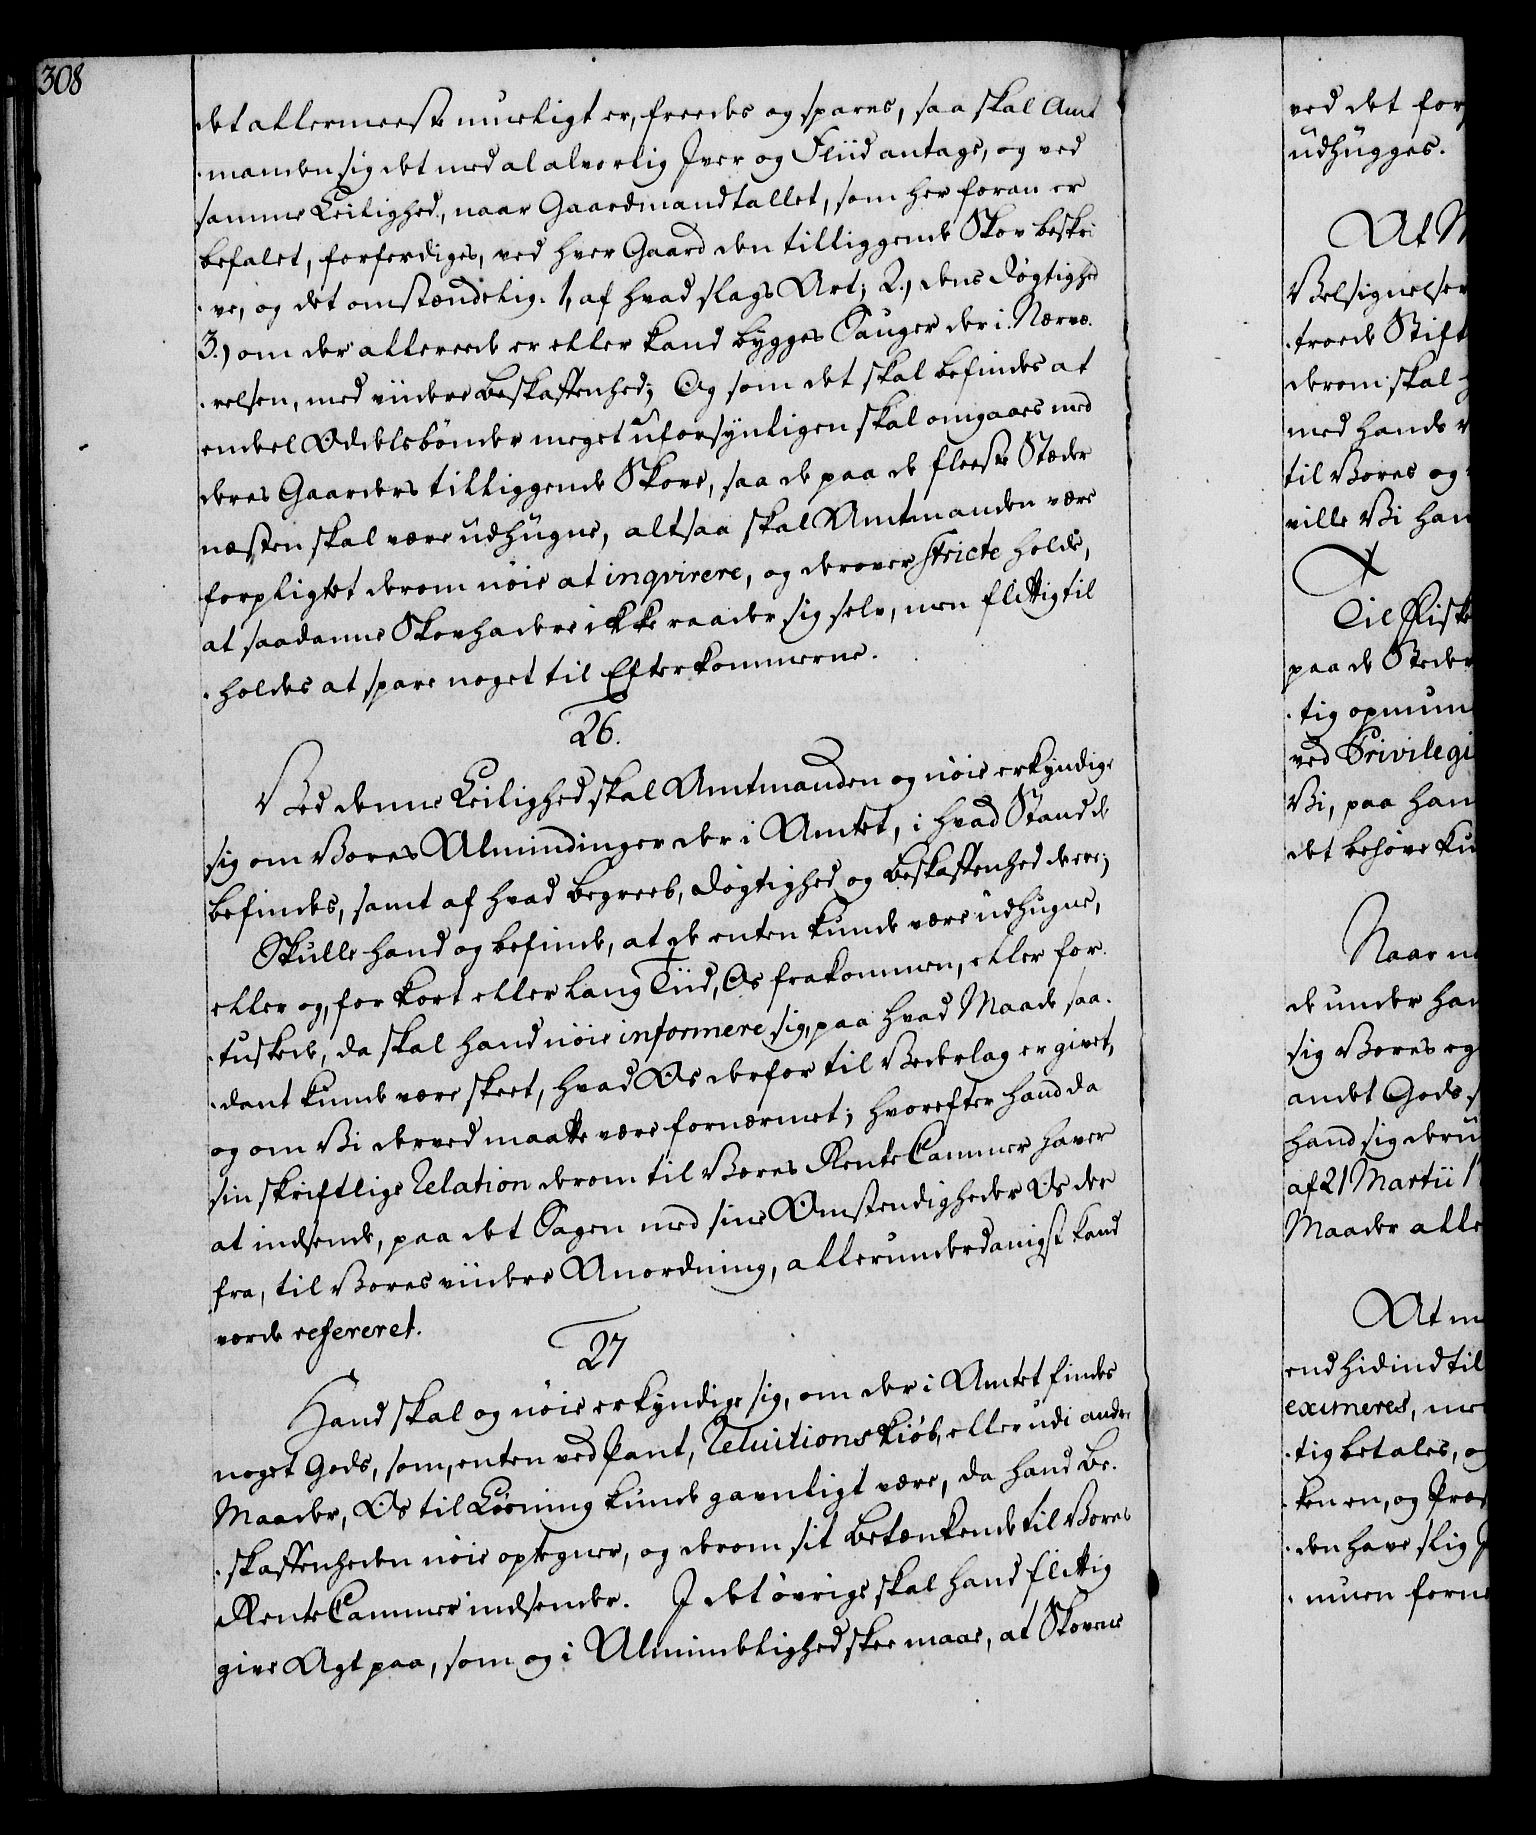 308
det allermeeste mueligt er, freedes og spares, saa skal Amt
manden sig det med al alvorlig Iver og Fliid antage, og ved
samme Leilighed, naar Gaardmandtallet, som her foran er
befalet, forferdiges, ved hver Gaard den tilliggende Skov beskri
ve, og det omstændelig. 1, af hvad slags Art; 2.) dens Døgtighed
3.) om der allereede er eller kand bygges Sauger der i Nærvæ-
relsen, med viidere beskaffenhed; Og som det skal befindes at
endeel Odelsbønder meget uforsynligen skal omgaaes med
deres Gaarders tilliggende Skove, saa de paa de fleeste Stæder
næsten skal være udhugne, altsaa skal Amtmanden være
forpligtet derom nöie at inqvirere, og derover stricte holde,
at saadanne Skovhadere ikke raader sig selv, men flittig til
holdes at spare noget til Efterkommerne.
26.
Ved denne Leilighed skal Amtmanden og nöie erkyndige
sig om Vores Almindinger der i Amtet, i hvad Stand de
befindes, samt af hvad begreeb, døgtighed og beskaffenhed de ere;
Skulle hand og befinde, at de enten kunde være udhugne,
eller og, for kort eller lang Tiid, Os frakommen, eller for-
tuskede, da skal hand nöie informere sig, paa hvad Maade saa-
dant kunde være skeet, hvad Os derfor til Vederlag er givet,
og om Vi derved maatte være fornærmet; hvorefter hand da
sin skriftlige Relation derom til Vores Rente Cammer haver
at indsende, paa det Sagen med sine Omstendigheder Os der
fra, til Vores viidere Anordning, allerunderdanigst kand
vorde refereret.
27
Hand skal og nöie erkyndige sig, om der i Amtet findes
noget Gods, som, enten ved Pant, Reluitions kiöb, eller udi andre
Maader, Os til Lösning kunde gavnligt være, da hand be-
skaffenheden nöie optegner, og derom sit betænkende til Vores
Rente Cammer indsender. I det övrige skal hand flittig
give Agt paa, som og i Almindelighed skee maae, at Skovene
ved det for
udhugges.
At
Velsignelser
troede Stift
derom skal
med hands
til Vores og
ville Vi han
Til Fiske
paa de Steder
tig opmun
ved Privilegi
Vi, paa han
det behöve ku
Naar
de under han
sig Vores eg
andet Gods
hand sig deru
af 21 Martii
Maader alle
At
end hidindtil
eximeres,
tig betales,
ken en, og
den have slig
muen forne